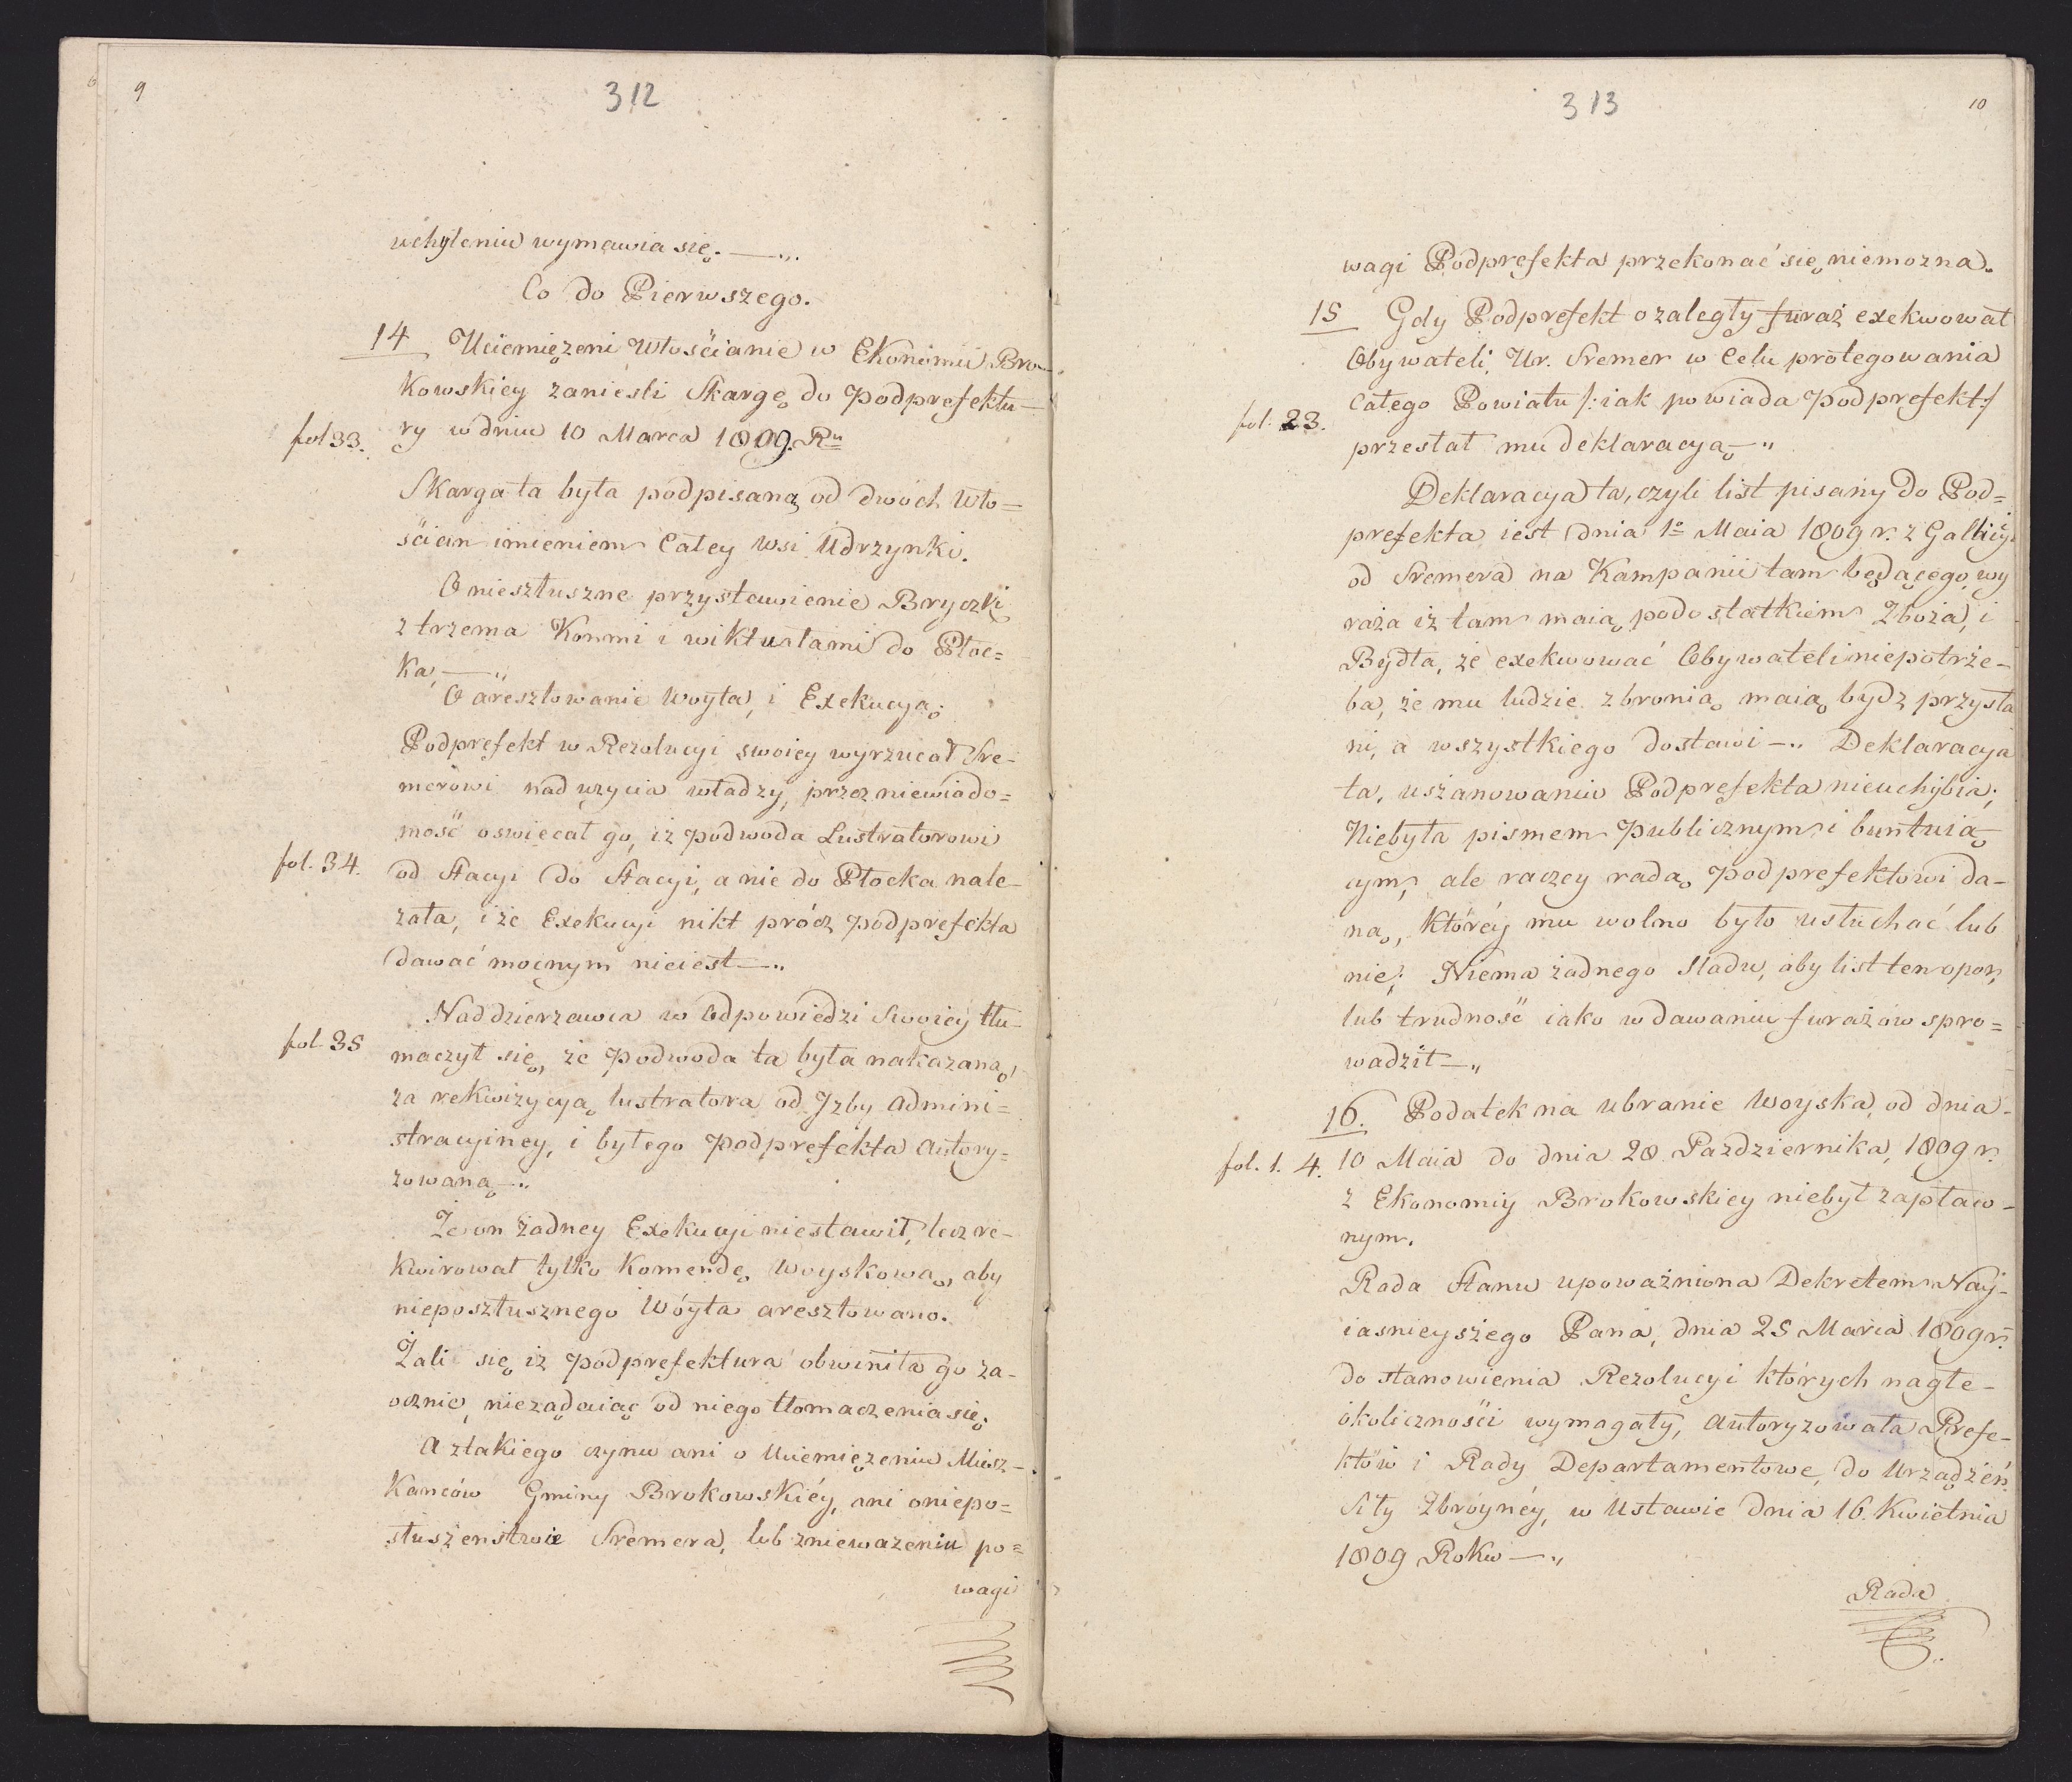 6 9 312
uchyleniu wymawia się. —„.
Co do Pierwszego.
14 Uciemiężeni Włościanie w Ekonomii Bro-
kowskiey zanieśli Skargę do Podprefektu-
fol 33. ry w dniu 10 Marca 1809. Ru
Skarga ta była podpisaną od dwóch Wło=
ścian imieniem Całey Wsi Udrzynki.
O niesztuszne przystawienie Bryczki
z trzema Konmi i wiktuałami do Płoc=
ka, —„
O aresztowanie Woyta, i Exekucyą.
Podprefekt w Rezolucyi swoiey wyrzucał Sre-
merowi nad użycia władzy, przez niewiado=
mość oswiecał go, iż podwoda Lustratorowi
fol. 34. od Stacyi do Stacyi, a nie do Płocka nale-
zała, i że Exekucyi nikt prócz podprefekta
dawać mocnym nieiest —„
Naddzierzawca w Odpowiedzi Swoiey tłu-
fol 35 maczył się, że podwoda ta była nakazaną,
za rekwizycyą lustratora od Izby Admini=
stracyiney, i byłego podprefekta autory=
zowaną —„
Że on żadney Exekucyi niestawił, lecz re-
kwirował tylko Komendę Woyskową, aby
nieposztusznego Wóyta aresztowano.
Żali się iż podprefektura obwiniła go za-
ocznie, nieżądaiąc od niego tłomaczenia się.
A ztakiego czynu ani o Uciemiężeniu Miesz-
kańców Gminy Brokowskiéy, ani o niepo=
słuszeństwie Sremera, lub znieważeniu po=
wagi
313 10
wagi Podprefekta przekonać się niemożna.
15 Gdy Podprefekt o zaległy furaż exekwował
Obywateli, Ur. Sremer w Celu protegowania
fol. 23. Całego Powiatu /: iak powiada podprefekt :/
przesłał mu deklaracyą —„
Deklaracya ta, czyli list pisany do Pod=
prefekta iest dnia 1o Maia 1809 r. z Gallicyi
od Sremera na Kampanii tam będącego, wy
raża iż tam maią podostatkiem Zboża, i
Bydła, że exekwować Obywateli niepotrze-
ba, że mu ludzie z bronią maią bydź przysła
ni, a wszystkiego dostawi —„ Deklaracyia
ta, uszanowaniu Podprefekta nieuchybia;
Niebyła pismem Publicznym i buntuią-
cym, ale raczey radą Podprefektowi da-
ną, któréy mu wolno było usłuchać lub
nie; Niema żadnego sladu, aby list ten opor,
lub trudność iako w dawaniu furażów spro=
wadził —„
16. Podatek na ubranie Woyska, od dnia -
fol. 1. 4. 10 Maia do dnia 28 Października, 1809 r.
z Ekonomiy Brokowskiey niebył zapłaco-
nym.
Rada Stanu upoważniona Dekretem Nay-
iasnieyszego Pana, dnia 25 Marca 1809 r.
do stanowienia Rezolucyi których nagłe-
okoliczności wymagały, autoryzowała Prefe-
któw i Rady Departamentowe, do Urządzeń
Siły Zbroynéy, w Ustawie dnia 16. Kwietnia
1809 Roku —„
Rada